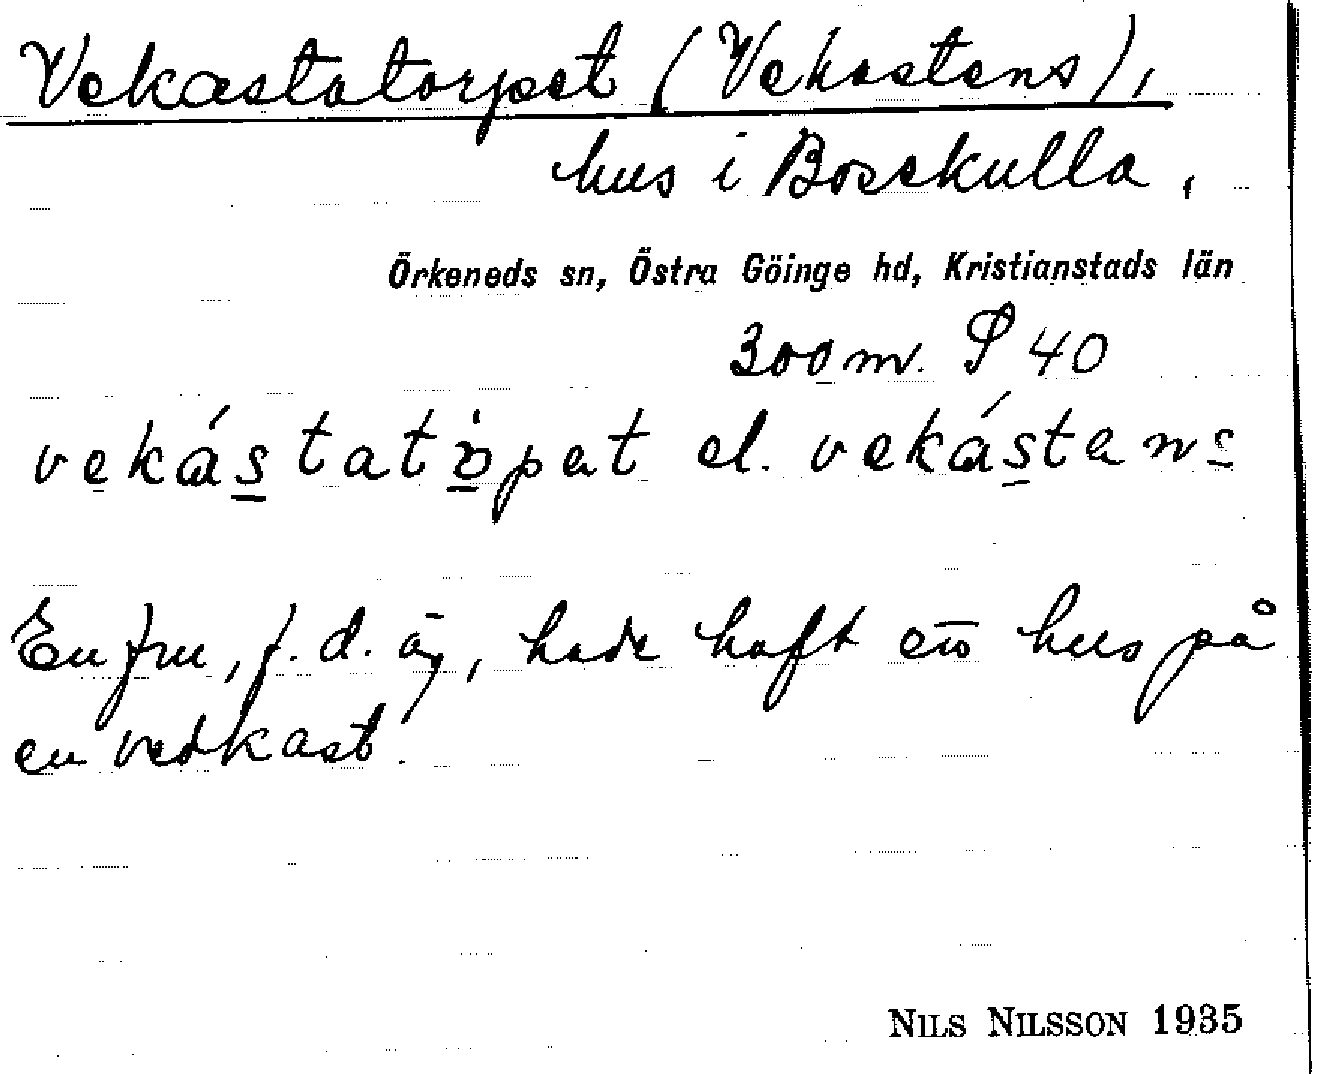 Vekastatorpet (Vekastens),
hus i Bosekulla,
Örkeneds sn, Östra Göinge hd, Kristianstads län
300 m. S 40
vekástatòpet el. vekástens
En fru, f. d. äg, hade haft ett hus på
en vedkast.
NILS NILSSON 1935